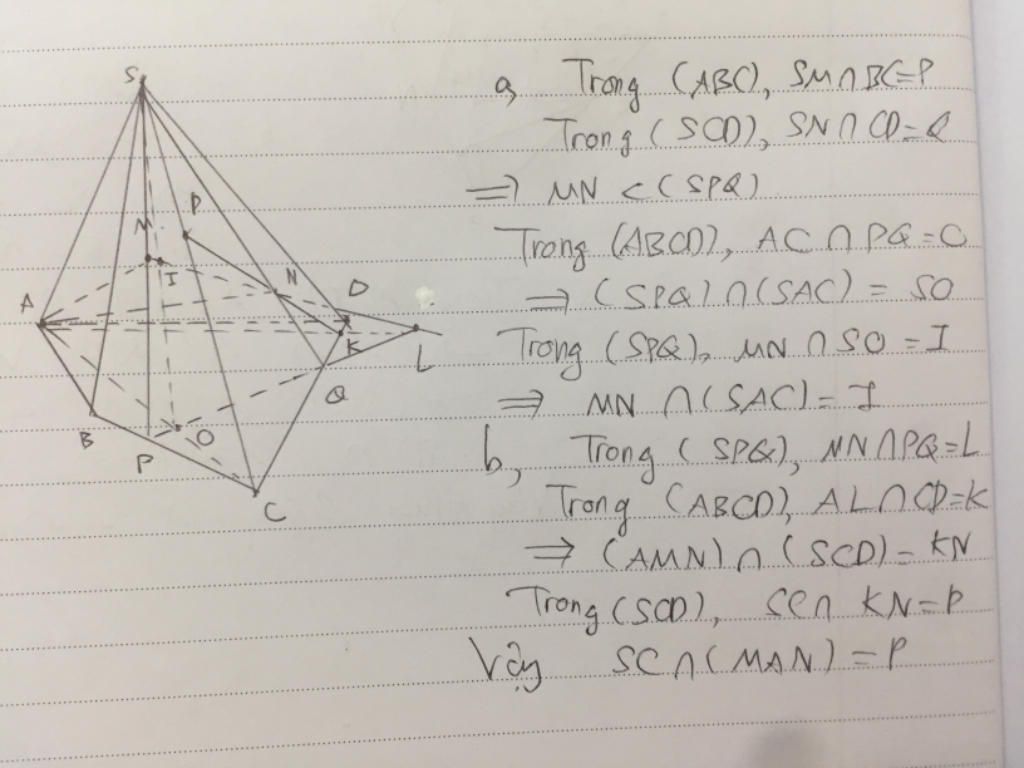 S
M
P
I
N
D
A
K
L
Q
B
O
P
C
a, Trong (ABC), SM∩BC=P
Trong (SCD), SN∩CD=Q
=> MN ⊂ (SPQ)
Trong (ABCD), AC∩PQ=O
=> (SPQ)∩(SAC) = SO
Trong (SPQ), MN∩SO=I
=> MN∩(SAC)=I
b, Trong (SPQ), MN∩PQ=L
Trong (ABCD), AL∩CD=K
=> (AMN)∩(SCD)=KN
Trong (SCD), SC∩KN=P
Vậy SC∩(MAN)=P